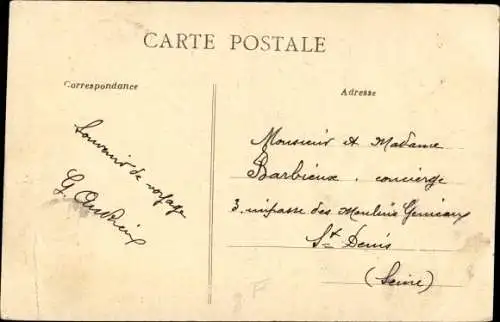 CARTE POSTALE
Correspondance
Souvenir de voyage
G
Adresse
Monsieur et Madame
Barbieux, concierge
3. impasse des Moulins Gemeaux
St Denis
(Seine)
F